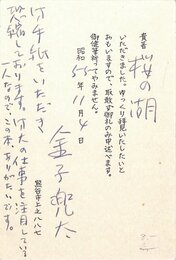 貴著
桜の湖
いただきました。ゆっくり拝見いたしたいと
おもいますので、取敢ず御礼のみ申述べます。
御健筆祈ってやみません。
昭和55年11月4日
金子兜太
熊谷市上之八八七
お手紙もいただき
恐縮しております。御大の仕事を注目している
一人なので、この本、ありがたいです。